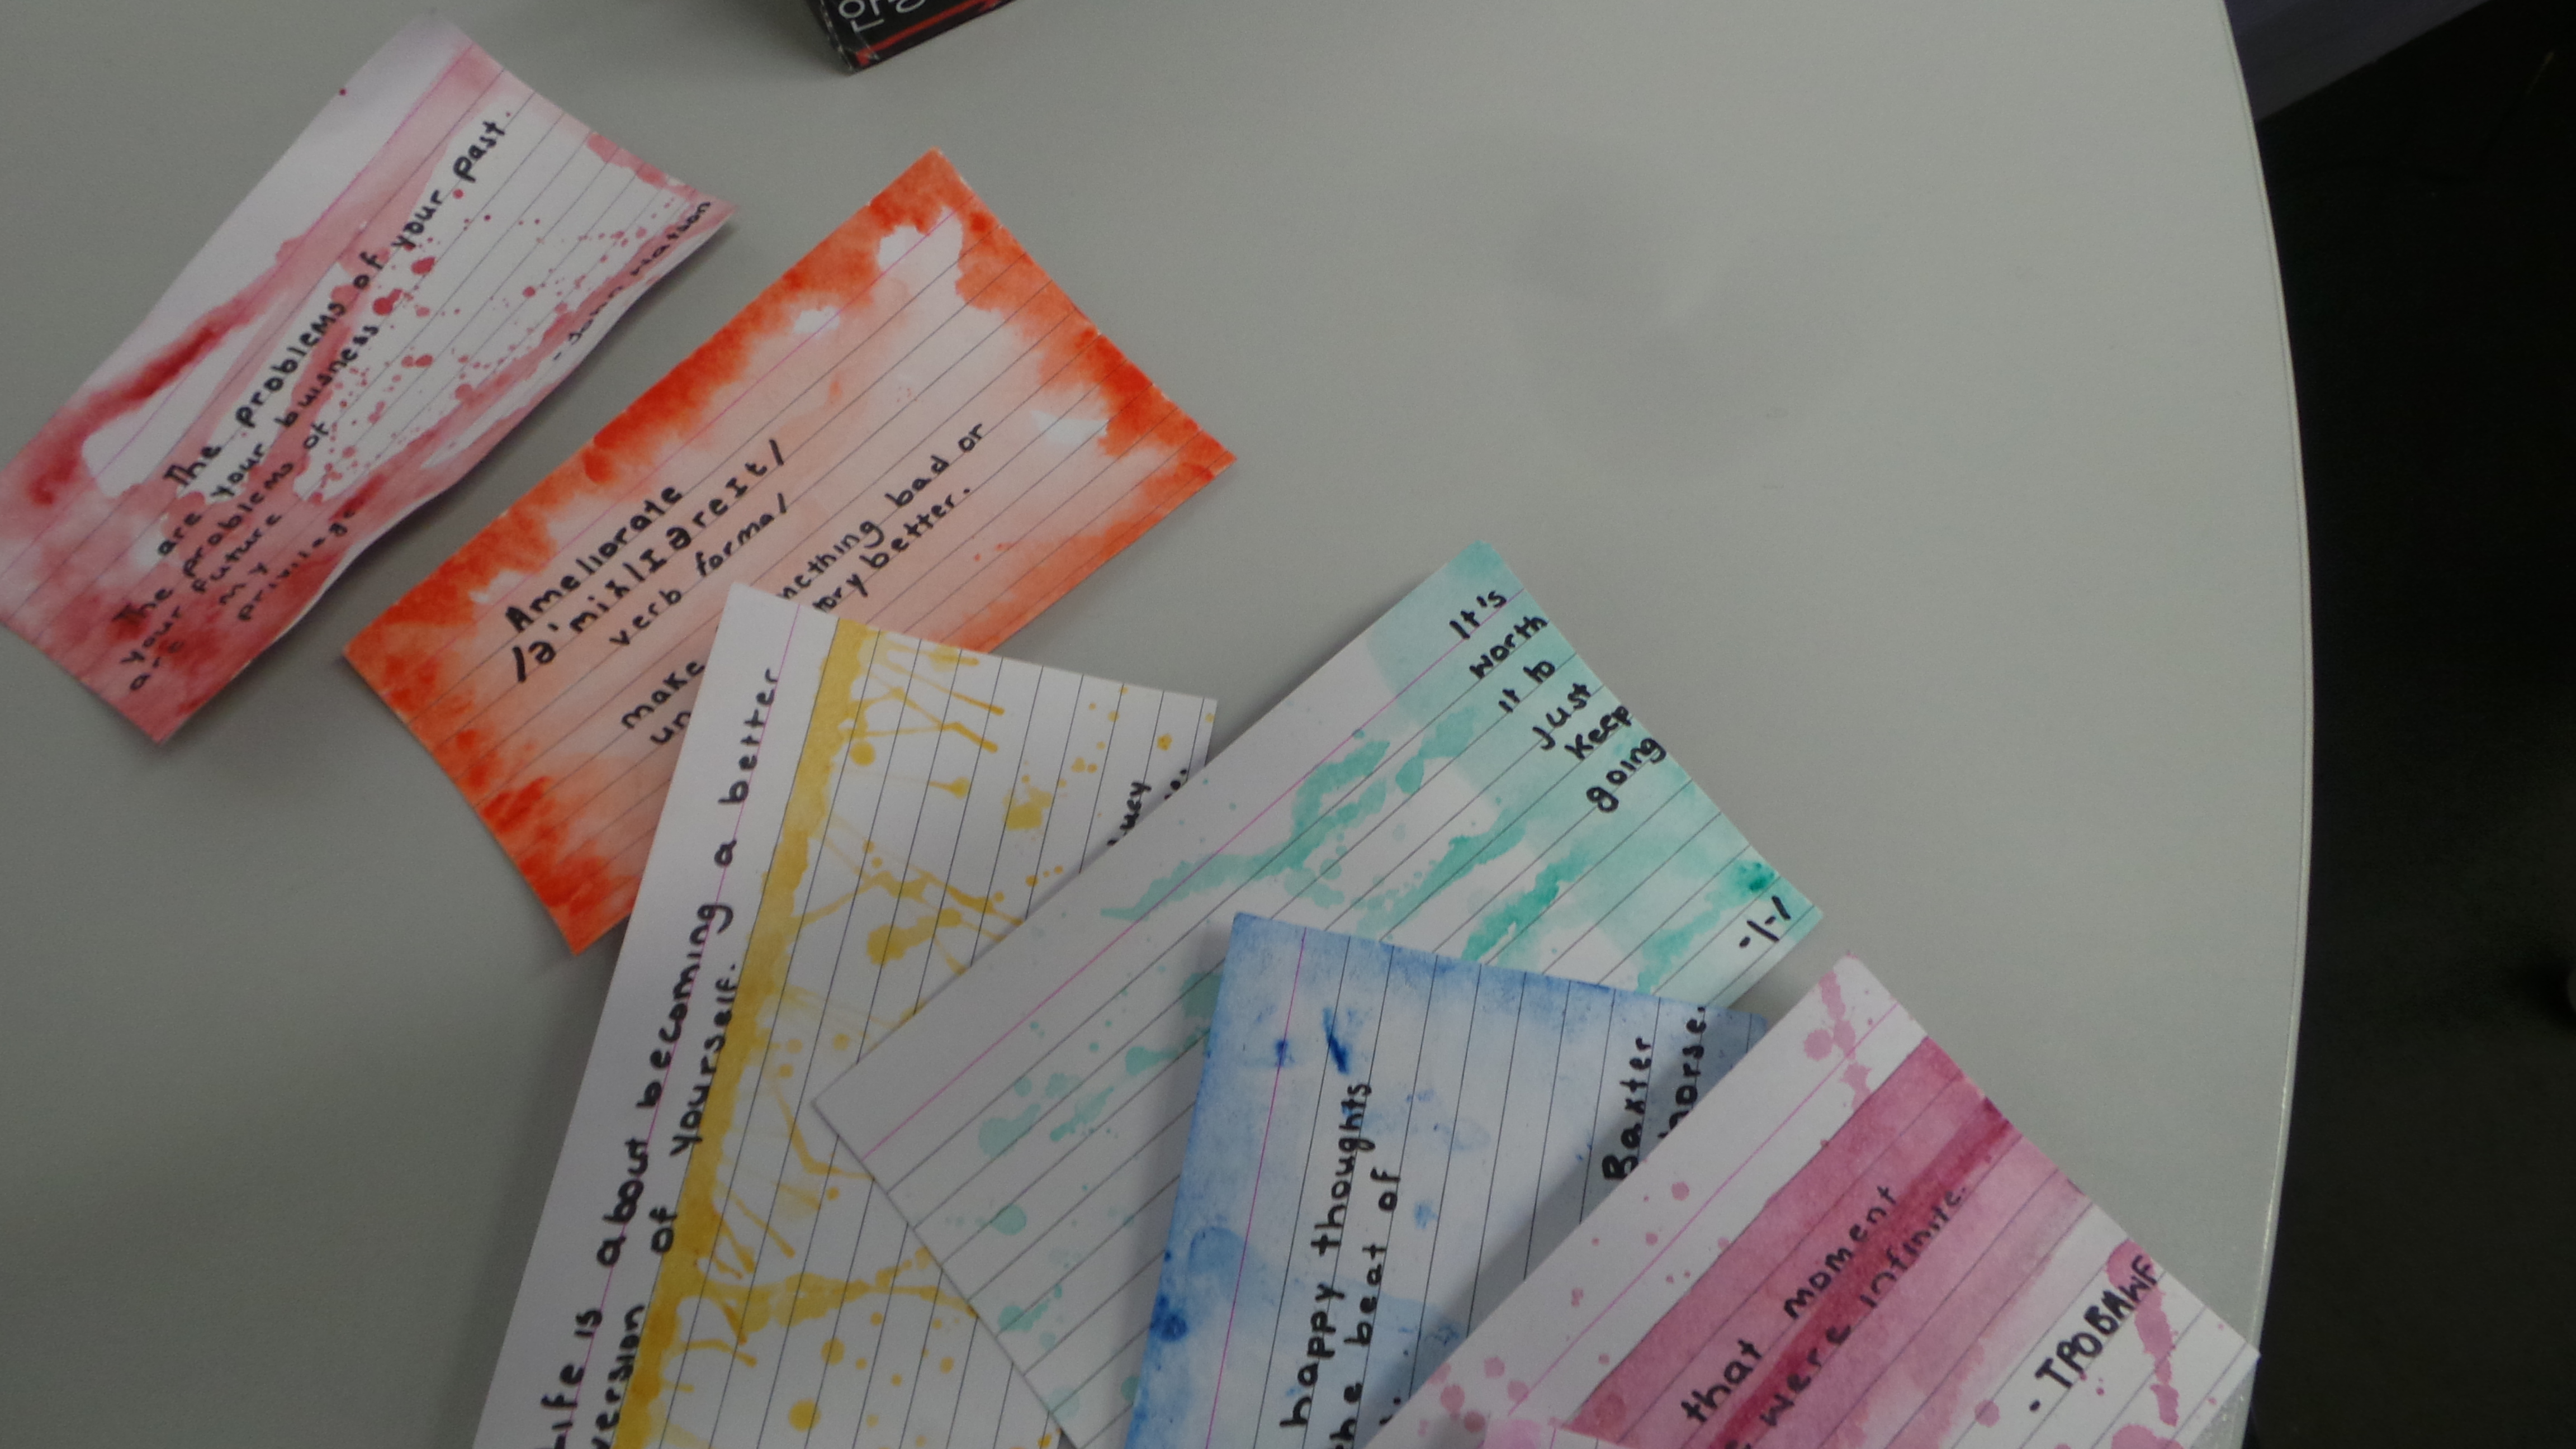 The problems of your past
are your buisness.
The problems of
your future
are my
privilege
- John Watson
Ameliorate
/ə'miːlɪəreɪt/
verb formal
make
mething bad or
un
tory better.
Life is about becoming a better
version of yourself.
It's
worth
it to
just
keep
going
happy thoughts
the beat of
Baxter
that moment
were infinite.
- TPOBAWF